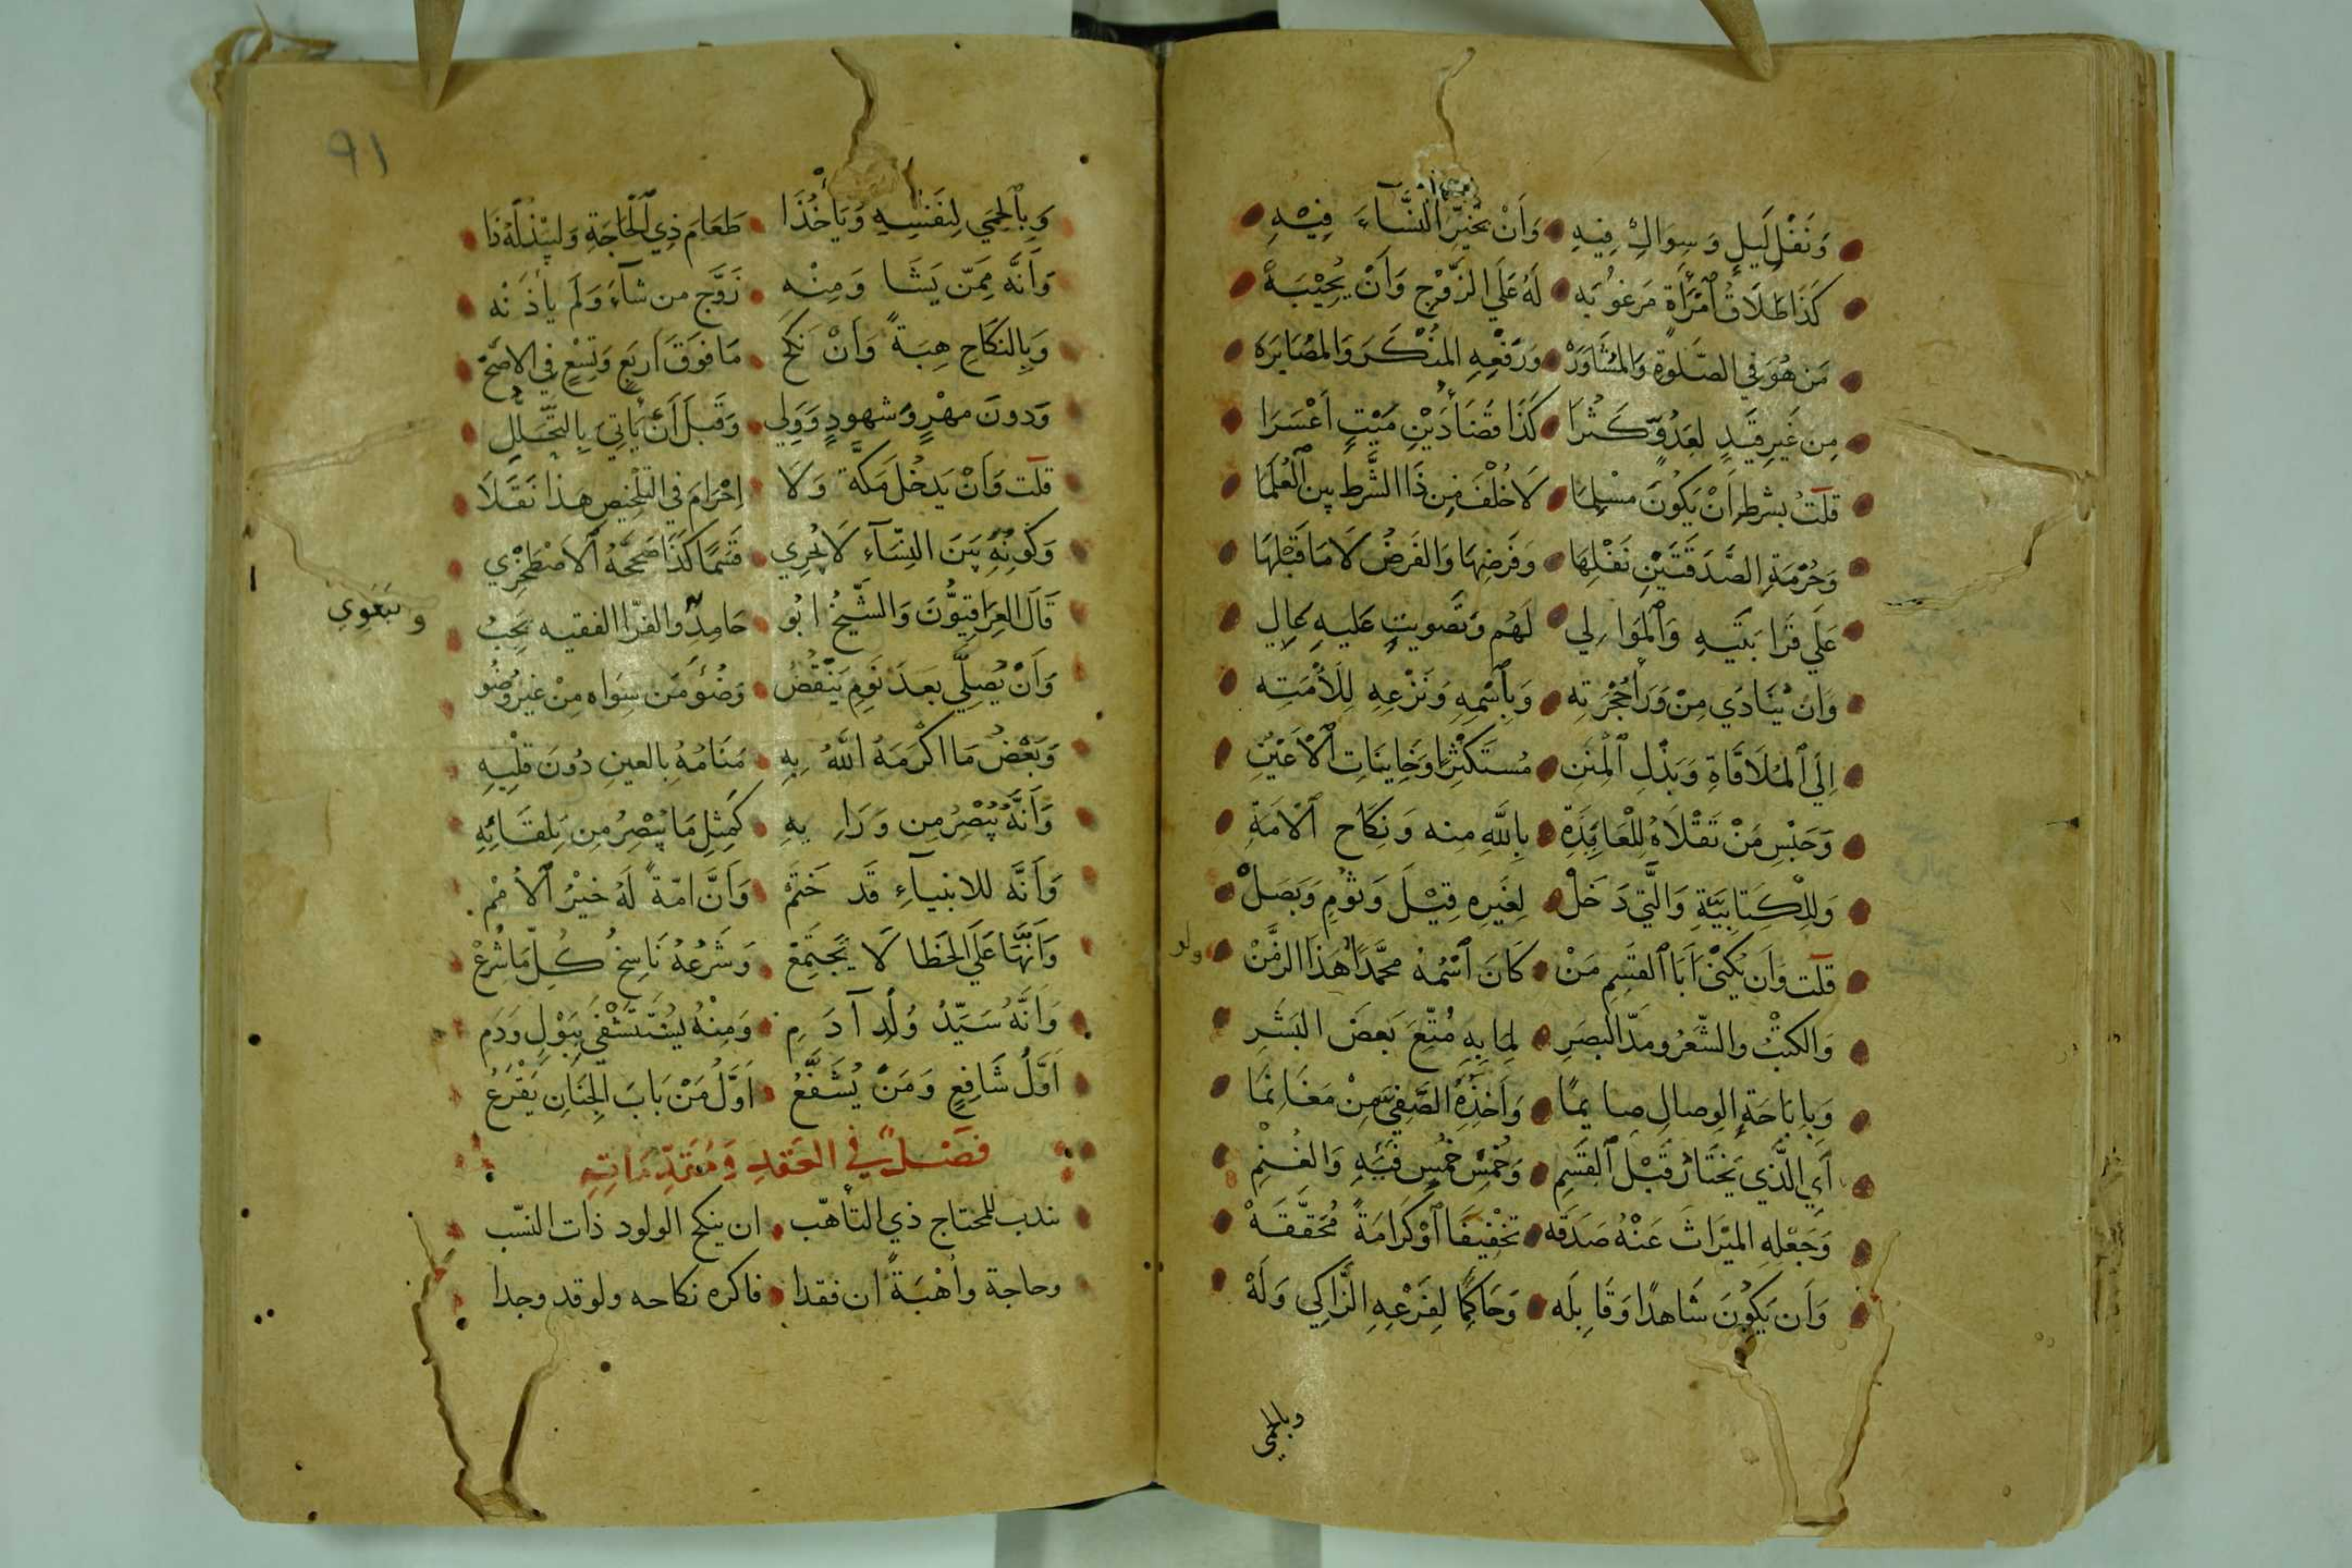 وَنَفْلِ لَيلٍ وَسِوَاكٍ فِيهِ وَأَنْ يُخَيِّرَ النِّسَاءَ فِيْهِ
كَذَا طَلَاقُ ٱمْرَأَةٍ مَرغُوبَه لَهُ عَلَى الزَّوْجِ وَأَنْ يُجِيْبَهْ
مَن هُوَ فِي الصَّلوةِ وَالمُشَاوَرَهْ وَرَفْعِهِ المُنْكَرَ وَالمُصَابَرَه
مِن غَيرِ قَيدٍ لِعَدُوٍّ كَثُرَا كَذَا قَضَا دَيْنِ مَيْتٍ أَعْسَرَا
قلتُ بِشرطِ أَنْ يَكُونَ مسْلِمَا لَا خُلْفَ مِن ذَا الشَّرطِ بين ٱلعُلَمَا
وَحُرْمَةِ الصَّدَقَتَيْنِ نَفْلِهَا وَفَرَضِهَا وَالفَرضُ لَا مَا قَبْلَهَا
عَلَي قَرَابَتَيهِ وَٱلمَوَالِي لَهُم وَتَصويتٍ عَليهِ عَالِي
وَأنْ يُنَادَي مِنْ وَرَا حُجْرَتِه وَبِٱسْمِهِ وَنَزْعِهِ لِلَأْمَتِه
إِلَي ٱلمُلَاقَاةِ وَبَذْلِ ٱلْمِنَنِ مُستَكْثِرًا وَخَايِنَاتِ ٱلْأَعْيُنِ
وَحَبْسِ مَنْ تَقْلَاهُ لِلْعَايِذَةِ بِاللهِ منه وَنِكَاحِ ٱلْأَمَةِ
وَلِلْكِتَابِيَّةِ وَالَّتِي دَخَلْ لِغَيرِهِ قِيْلَ وَثُومٍ وَبَصَلْ
قلت وَأَن يُكْنَى أَبَا ٱلقٰسِمِ مَنْ كَانَ ٱسْمُهُ محمَّدًا هَذَا الزَّمَنْ
ولو
وَالكَتْبُ والشِّعْرُ ومَدّ البَصَرِ لِمَا بِهِ مُتِّعَ بَعضُ البَشَرِ
وَبِإبَاحَةِ الوِصالِ صايمًا وَأَخْذِهِ الصَّفِيَّ مِنْ مَغَانِمَا
أَيِ الَّذي يَخْتَارُ قَبْلَ ٱلقَسِمِ وَخُمْسِ خُمْسِ فَيْئِهِ وَالغُنْمِ
وَجَعْلِهِ المِيْرَاثَ عَنْهُ صَدَقَه تَخْفِيفًا ٱوْ كَرَامَةً مُحَقَّقَهْ
وَأَن يَكُوْنَ شَاهدًا وَقَابِلَه وَحَاكِمًا لِفَرْعِهِ الزَّاكِي وَلَهْ
وبالحمى
٩١
وَبِٱلحِمَي لِنَفسِهِ وَيَأخُذَا طَعَامَ ذِي ٱلْحَاجَةِ وَليَبْذُلْهُ ذَا
وَأَنَّه مِمَّن يَشَا وَمِنْهِ زَوَّج من شآءَ وَلَم يأذَنْهِ
وَبِالنكَاحِ هِبَةً وَأنْ نَكَح مَا فَوَقَ أَربَعٍ وَتِسْعٍ فِي الأصَحّ
وَدونَ مهْرٍ وَشهودٍ وَوَلِي وَقَبلَ أَنْ يَأتِيَ بِالتَّحَلُّلِ
قلت وَأَنْ يَدخُلَ مَكَّةَ وَلَا إِحْرَامَ فِي التلْخِيصِ هذا نَقَلَا
وَكَونِهِ بَيَن النِّسَآءِ لَا يُجْرِي قَسْمًا كَذَا صَحَّحَهُ ٱلاصْطَخْرِي
قَالَ العِرَاقِيُّونَ وَالشَّيْخُ ابُو حَامِدٍ والفَرّا الفقيه يَجِبُ
وَأَنْ يُصَلِّي بَعدَ نَومٍ يَنْقُضُ وَضُوْءَ مَن سِوَاه مِنْ غيرِ وُضُو
وَبَعْضُ مَا اكْرَمَهُ اللهُ بِهِ مَنَامُهُ بِالعينِ دُونَ قَلْبِهِ
وَأَنَّهُ يُبْصِرُ مِن وَرَايِهِ كَمِثِلِ مَا يُبْصِرُ مِن تِلقَائِهِ
وَأَنَّه للانبيآءِ قَد خَتَمْ وَأَنَّ امّةً لَهُ خَيْرُ ٱلأُمَمْ
وَأَنَّهَا عَلَي الخَطا لَا يَجْتَمِعْ وَشَرْعُهُ نَاسِخُ كُلِّ مَا شُرِعْ
وَأَنَّهُ سَيِّدُ وُلْدِ آدَمِ وَمِنْهُ يُستَشْفَي بِبَوْلٍ وَدَمِ
أَوَّلُ شَافِعٍ وَمَنْ يُشَفَّعُ أَوَّلُ مَنْ بَابَ الجِنَانِ يَقْرَعُ
فصَلٌ في العَقدِ وَمُقَدِّمَاتِهِ
يندب للمحتاج ذي التأهّب ان ينكح الولود ذات النسَب
وحاجة وأُهْبَةً ان فقدا فاكره نكاحه ولو قد وجدا